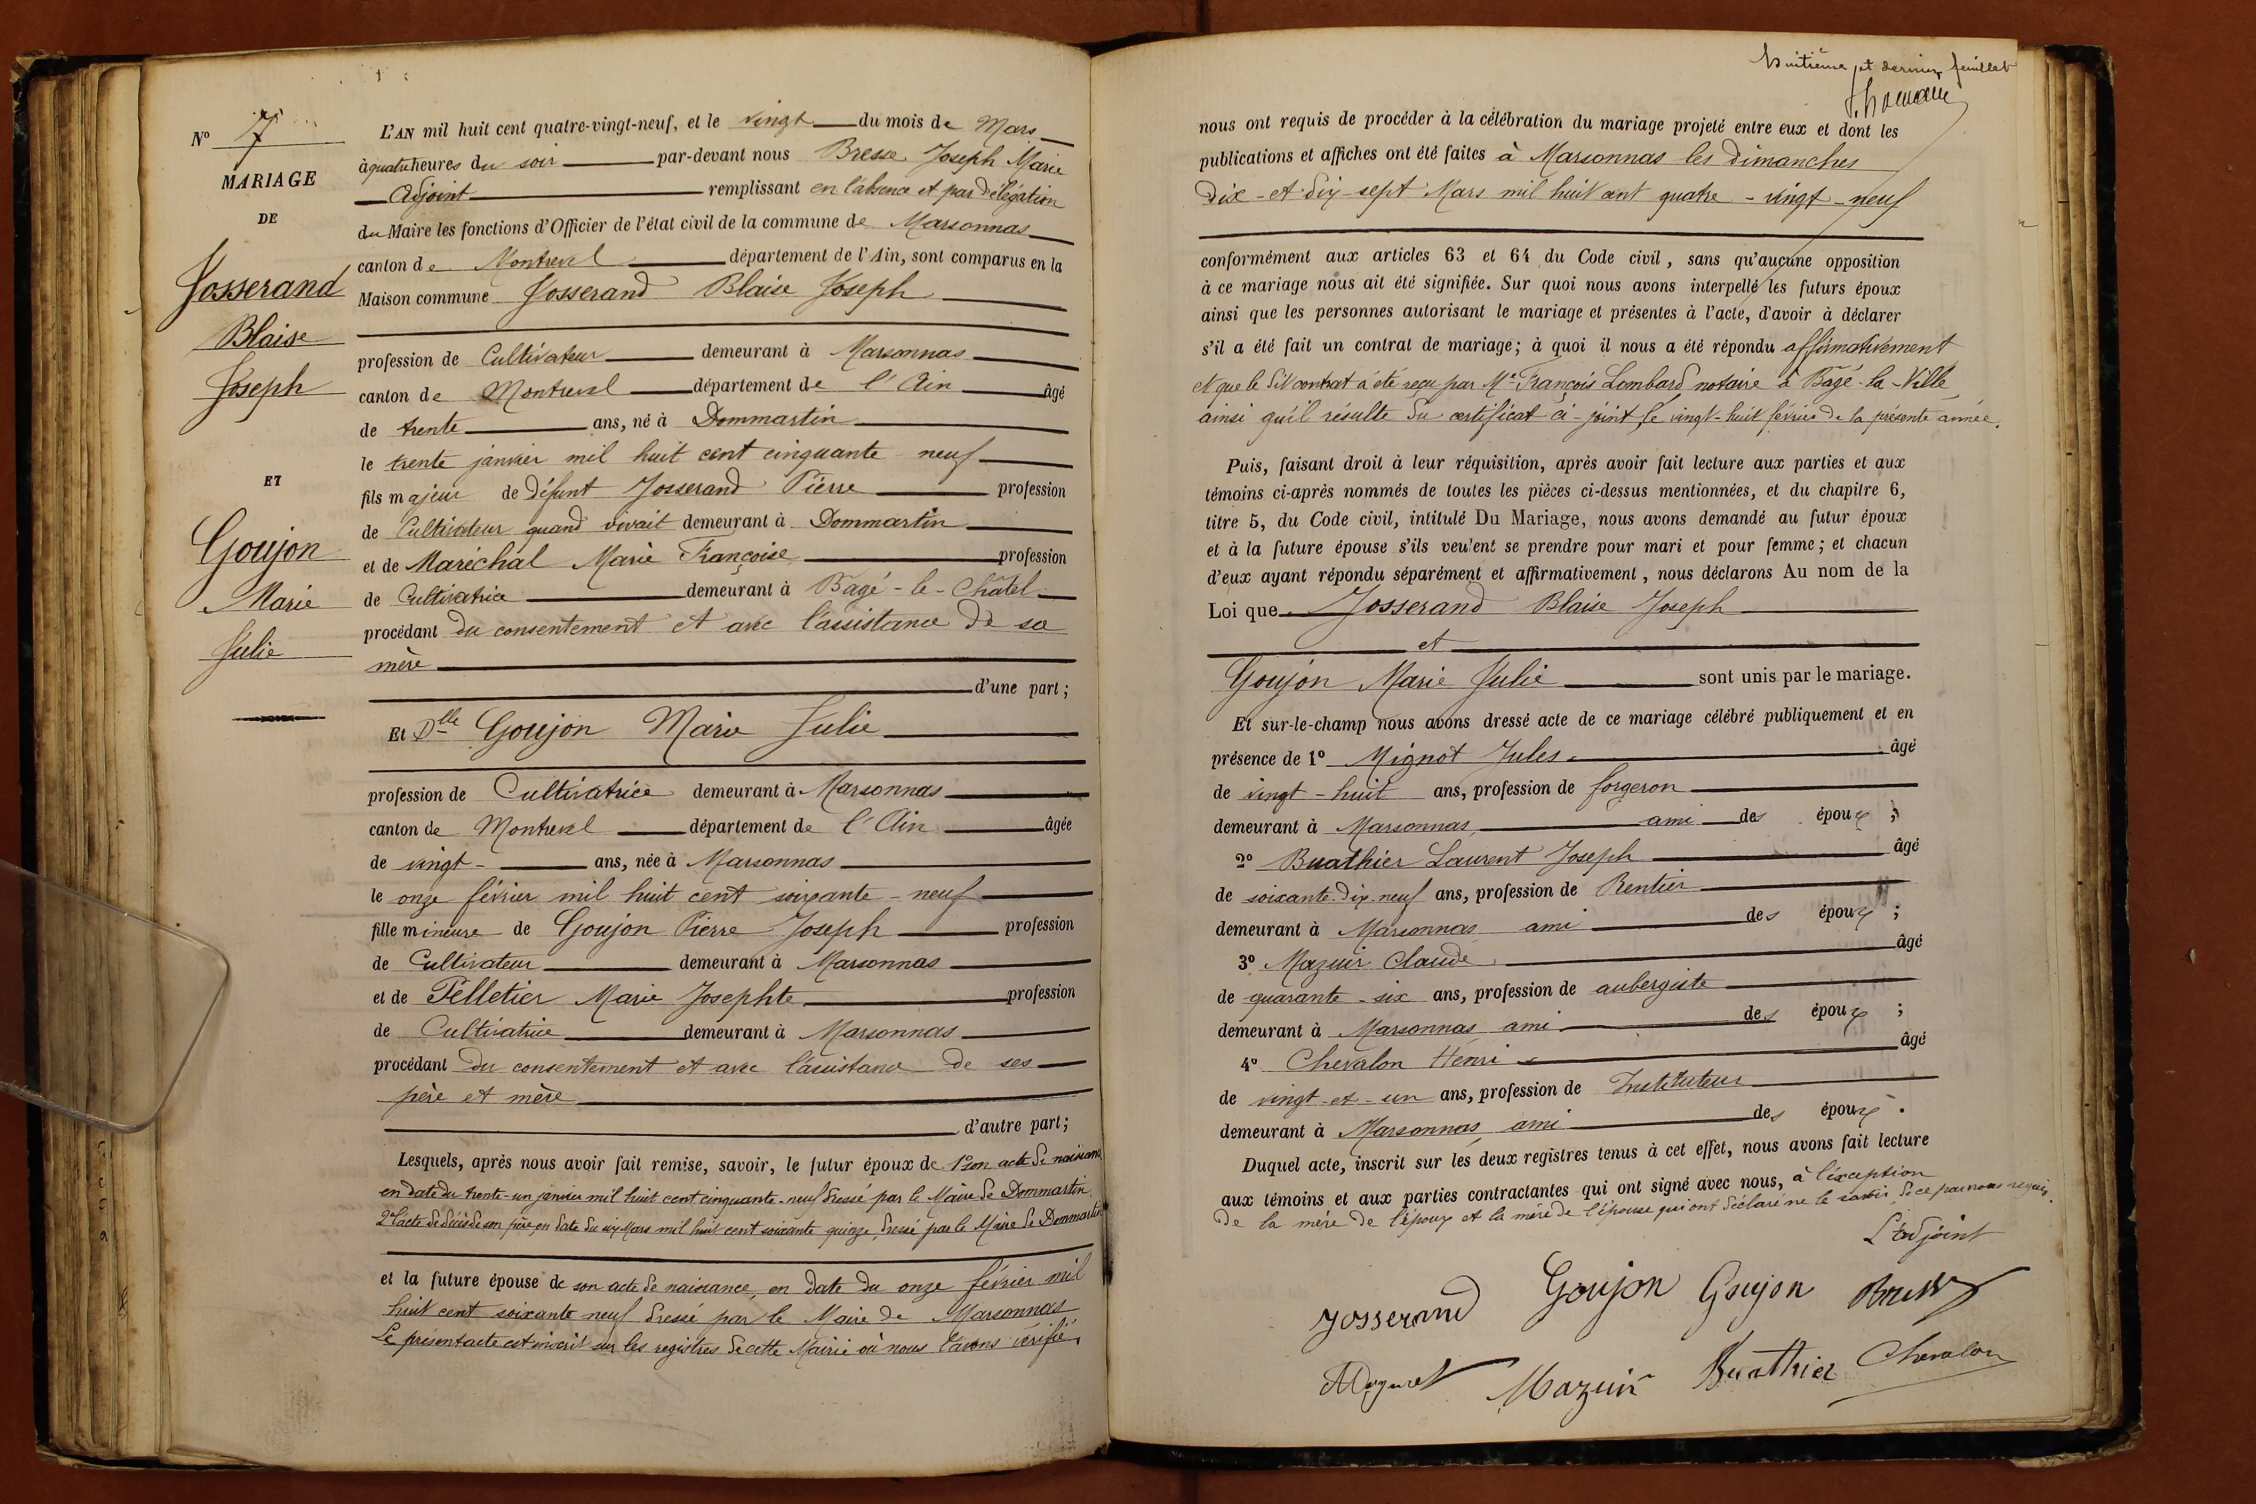 N° 7
MARIAGE
DE
Josserand
Blaise
Joseph
ET
Goujon
Marie
Julie
L'AN mil huit cent quatre-vingt-neuf, et le vingt du mois de Mars
à quatre heures du soir par-devant nous Bresse Joseph Marie
Adjoint remplissant en l'absence et par délégation
du Maire les fonctions d'Officier de l'état civil de la commune de Marsonnas
canton de Montrevel département de l'Ain, sont comparus en la
Maison commune Josserand Blaise Joseph
profession de Cultivateur demeurant à Marsonnas
canton de Montrevel département de l'Ain âgé
de trente ans, né à Dommartin
le trente janvier mil huit cent cinquante neuf
fils majeur de défunt Josserand Pierre profession
de Cultivateur quand vivait demeurant à Dommartin
et de Maréchal Marie Françoise profession
de Cultivatrice demeurant à Bagé-le-Châtel
procédant du consentement et avec l'assistance de sa
mère
d'une part;
Et Dlle Goujon Marie Julie
profession de Cultivatrice demeurant à Marsonnas
canton de Montrevel département de l'Ain âgée
de vingt ans, née à Marsonnas
le onze février mil huit cent soixante-neuf
fille mineure de Goujon Pierre Joseph profession
de Cultivateur demeurant à Marsonnas
et de Pelletier Marie Josephte profession
de Cultivatrice demeurant à Marsonnas
procédant du consentement et avec l'assistance de ses
père et mère
d'autre part;
Lesquels, après nous avoir fait remise, savoir, le futur époux de 1° son acte de naissance
en date du trente-un janvier mil huit cent cinquante-neuf dressé par le Maire de Dommartin
2° l'acte de décès de son père, en date du six Mars mil huit cent soixante quinze, dressé par le Maire de Dommartin
et la future épouse de son acte de naissance, en date du onze février mil
huit cent soixante neuf dressé par le Maire de Marsonnas
Le présent acte est inscrit sur les registres de cette Mairie où nous l'avons vérifié.
huitième et dernier feuillet
nous ont requis de procéder à la célébration du mariage projeté entre eux et dont les
publications et affiches ont été faites à Marsonnas les dimanches
dix - et dix-sept Mars mil huit cent quatre-vingt-neuf
conformément aux articles 63 et 64 du Code civil, sans qu'aucune opposition
à ce mariage nous ait été signifiée. Sur quoi nous avons interpellé les futurs époux
ainsi que les personnes autorisant le mariage et présentes à l'acte, d'avoir à déclarer
s'il a été fait un contrat de mariage; à quoi il nous a été répondu affirmativement
et que le dit contrat a été reçu par Me François Lombard notaire à Bagé-la-Ville
ainsi qu'il résulte du certificat ci-joint, le vingt-huit février de la présente année.
Puis, faisant droit à leur réquisition, après avoir fait lecture aux parties et aux
témoins ci-après nommés de toutes les pièces ci-dessus mentionnées, et du chapitre 6,
titre 5, du Code civil, intitulé Du Mariage, nous avons demandé au futur époux
et à la future épouse s'ils veulent se prendre pour mari et pour femme; et chacun
d'eux ayant répondu séparément et affirmativement, nous déclarons Au nom de la
Loi que Josserand Blaise Joseph
et
Goujon Marie Julie sont unis par le mariage.
Et sur-le-champ nous avons dressé acte de ce mariage célébré publiquement et en
présence de 1° Mignot Jules âgé
de vingt-huit ans, profession de forgeron
demeurant à Marsonnas ami des époux;
2° Buathier Laurent Joseph âgé
de soixante-dix-neuf ans, profession de Rentier
demeurant à Marsonnas ami des époux;
3° Mazuir Claude âgé
de quarante-six ans, profession de aubergiste
demeurant à Marsonnas ami des époux;
4° Chevalon Henri âgé
de vingt-et-un ans, profession de Instituteur
demeurant à Marsonnas ami des époux.
Duquel acte, inscrit sur les deux registres tenus à cet effet, nous avons fait lecture
aux témoins et aux parties contractantes qui ont signé avec nous, à l'exception
de la mère de l'époux et la mère de l'épouse qui ont déclaré ne le savoir, de ce par nous requis.
L'adjoint
Josserand Goujon Goujon Bresse
Mazuir Buathier Chevalon